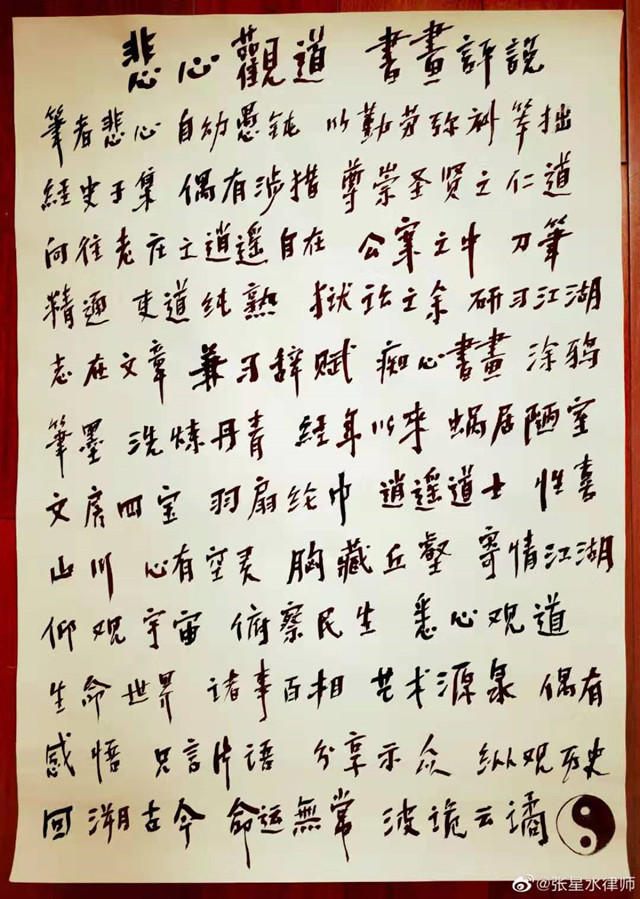 悲心觀道 書畫評說
筆者悲心 自幼愚钝 以勤劳弥补 笨拙
經史子集 偶有涉猎 尊崇圣贤之仁道
向往老庄之逍遥自在 公案之牛 刀筆
精通 吏道纯熟 狱讼之余 研习江湖
志在文章 兼习辞赋 痴心書畫 涂鸦
筆墨 洗炼丹青 经年以来 蜗居陋室
文房四宝 羽扇纶巾 逍遥道士 性喜
山川 心有空灵 胸藏丘壑 寄情江湖
仰观宇宙 俯察民生 悉心观道
生命世界 诸事百相 艺术源泉 偶有
感悟 只言片语 分享示众 纵观历史
回溯古今 命运無常 波诡云谲
@张星水律师